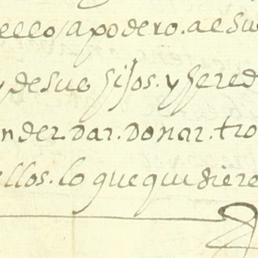 ello, apodero. de su
y de sus hijos. y hered
ender Dar. Donar. tro
ellos. lo que quisiere